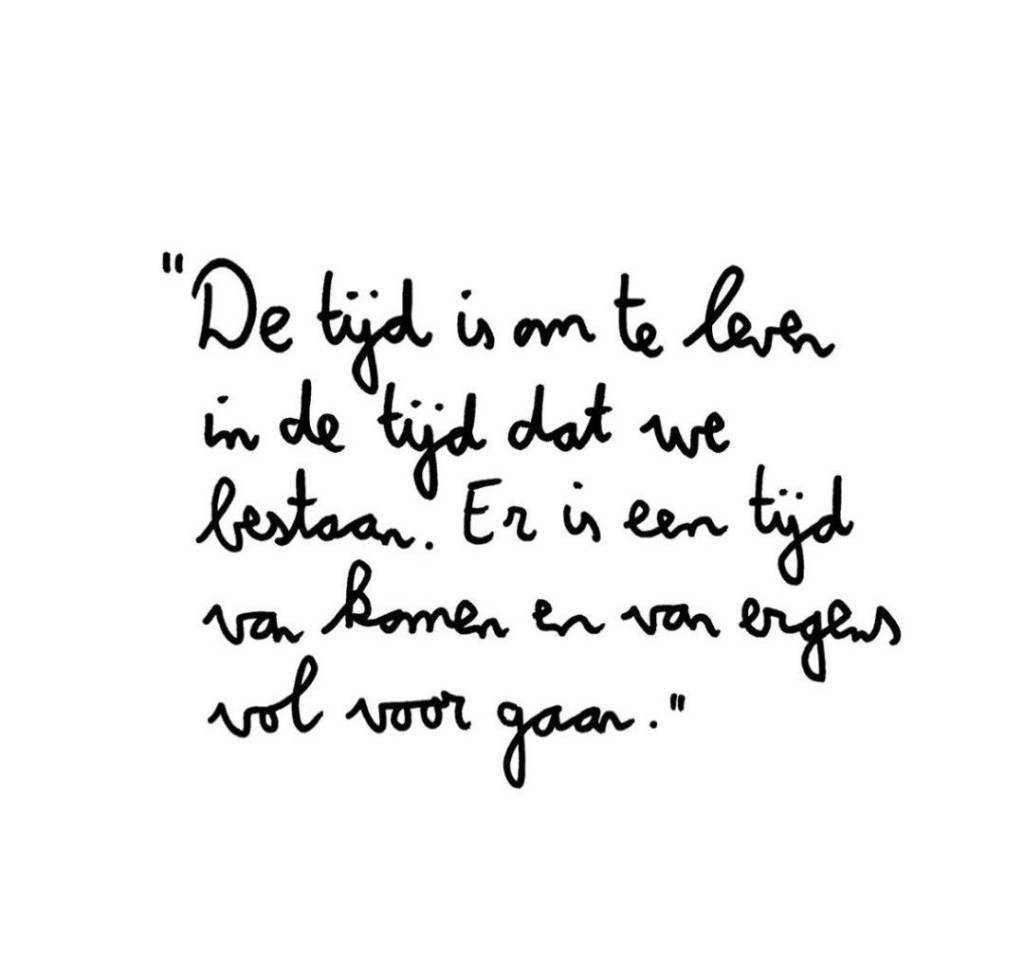 "De tijd is om te leven
in de tijd dat we
bestaan. Er is een tijd
van komen en van ergens
vol voor gaan."